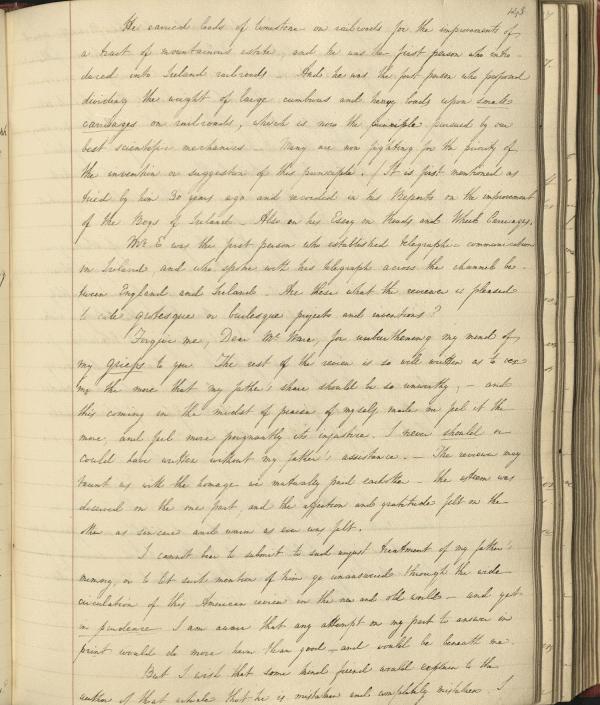 143.
He carried loads of limestone on railroads for the improvements of
a tract of mountainous estate, and he was the first person who intro-
duced into Ireland railroads – And he was the first person who proposed
dividing the weight of large cumbrous and heavy loads upon small
carriages on railroads, which is now the principle pursued by our
best scientific mechanics – Many are now fighting for the priority of
the invention or suggestion of this principle. It is first mentioned as
tried by him 30 years ago and recorded in his Reports on the improvement
of the Bogs of Ireland – Also in his Essay on Roads and Wheel Carriages.
Mr. E was the first person who established telegraphic communication
in Ireland and who spoke with his telegraph across the channel be-
tween England and Ireland. Are these what the reviewer is pleased
to call grotesque or burlesque projects and inventions?
Forgive me, Dear Mr. Ware, for unburthening my mind of
my griefs to you. The rest of the review is so well written as to vex
me the more that my father's share should be so unworthy, – and
this coming in the midst of praise of myself made me feel it the
more, and feel more poignantly its injustice. I never should or
could have written without my father's assistance. – The reviewer may
taunt us with the homage we mutually paid each other – the esteem was
deserved on the one part, and the affection and gratitude felt on the
other as sincere and warm as ever was felt.
I cannot bear to submit to such unjust treatment of my father's
memory, or to let such mention of him go unanswered through the wide
circulation of this American review in the new and old world – and yet
in prudence I am aware that any attempt on my part to answer in
print would do more harm than good – and would be beneath me.
But I wish that some kind friend would explain to the
author of that article that he is mistaken and completely mistaken. I